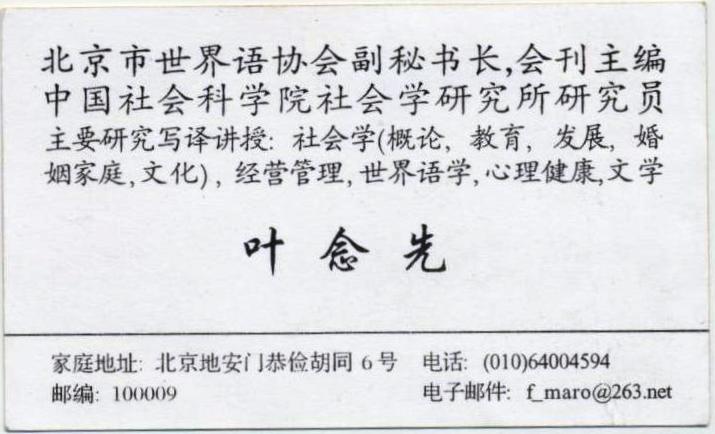 北京市世界语协会副秘书长,会刊主编
中国社会科学院社会学研究所研究员
主要研究写译讲授: 社会学(概论, 教育, 发展, 婚
姻家庭,文化), 经营管理,世界语学,心理健康,文学
叶念先
家庭地址: 北京地安门恭俭胡同 6 号 电话: (010)64004594
邮编: 100009 电子邮件: f_maro@263.net